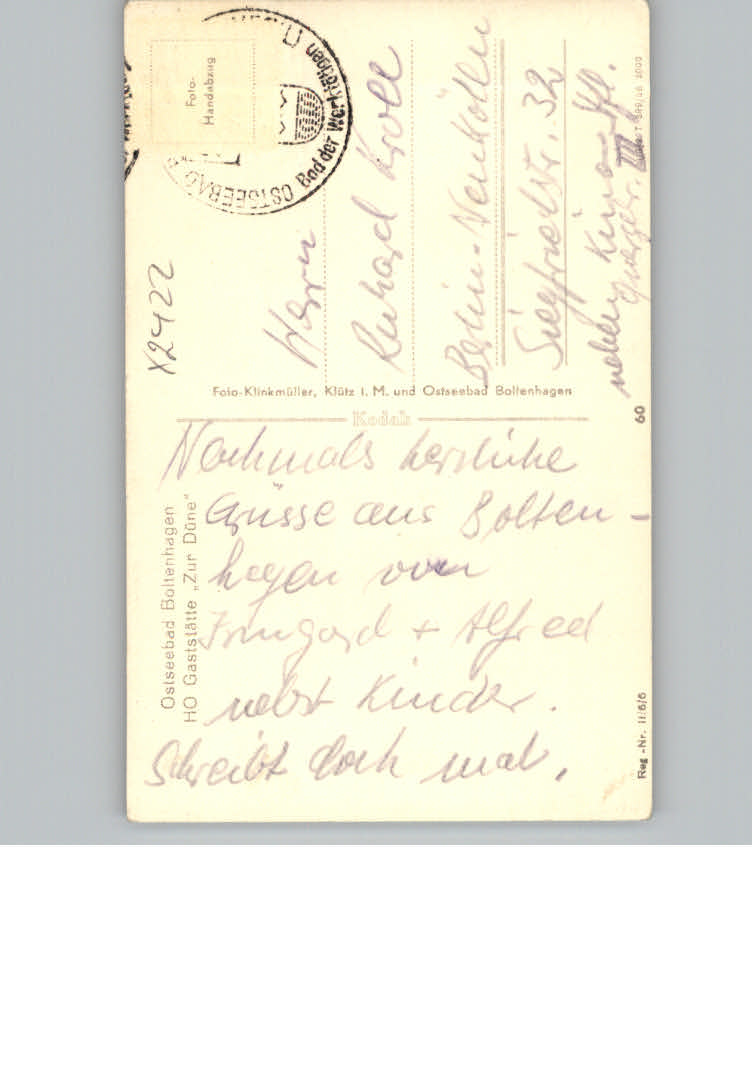 Foto-
Handabzug
OSTSEEBAD
Bad der Werktätigen
X2422
Herrn
Richard Kroll
Berlin-Neukölln
Siegfriedstr. 32
neben Kino
Quergeb. III
Foto-Klinkmüller, Klütz i. M. und Ostseebad Boltenhagen
Kodak
60
Ostseebad Boltenhagen
HO Gaststätte „Zur Düne"
Nochmals herzliche
Grüsse aus Bolten-
hagen von
Irmgard + Alfred
nebst Kinder.
Schreibt doch mal.
Reg.-Nr. II/6/6